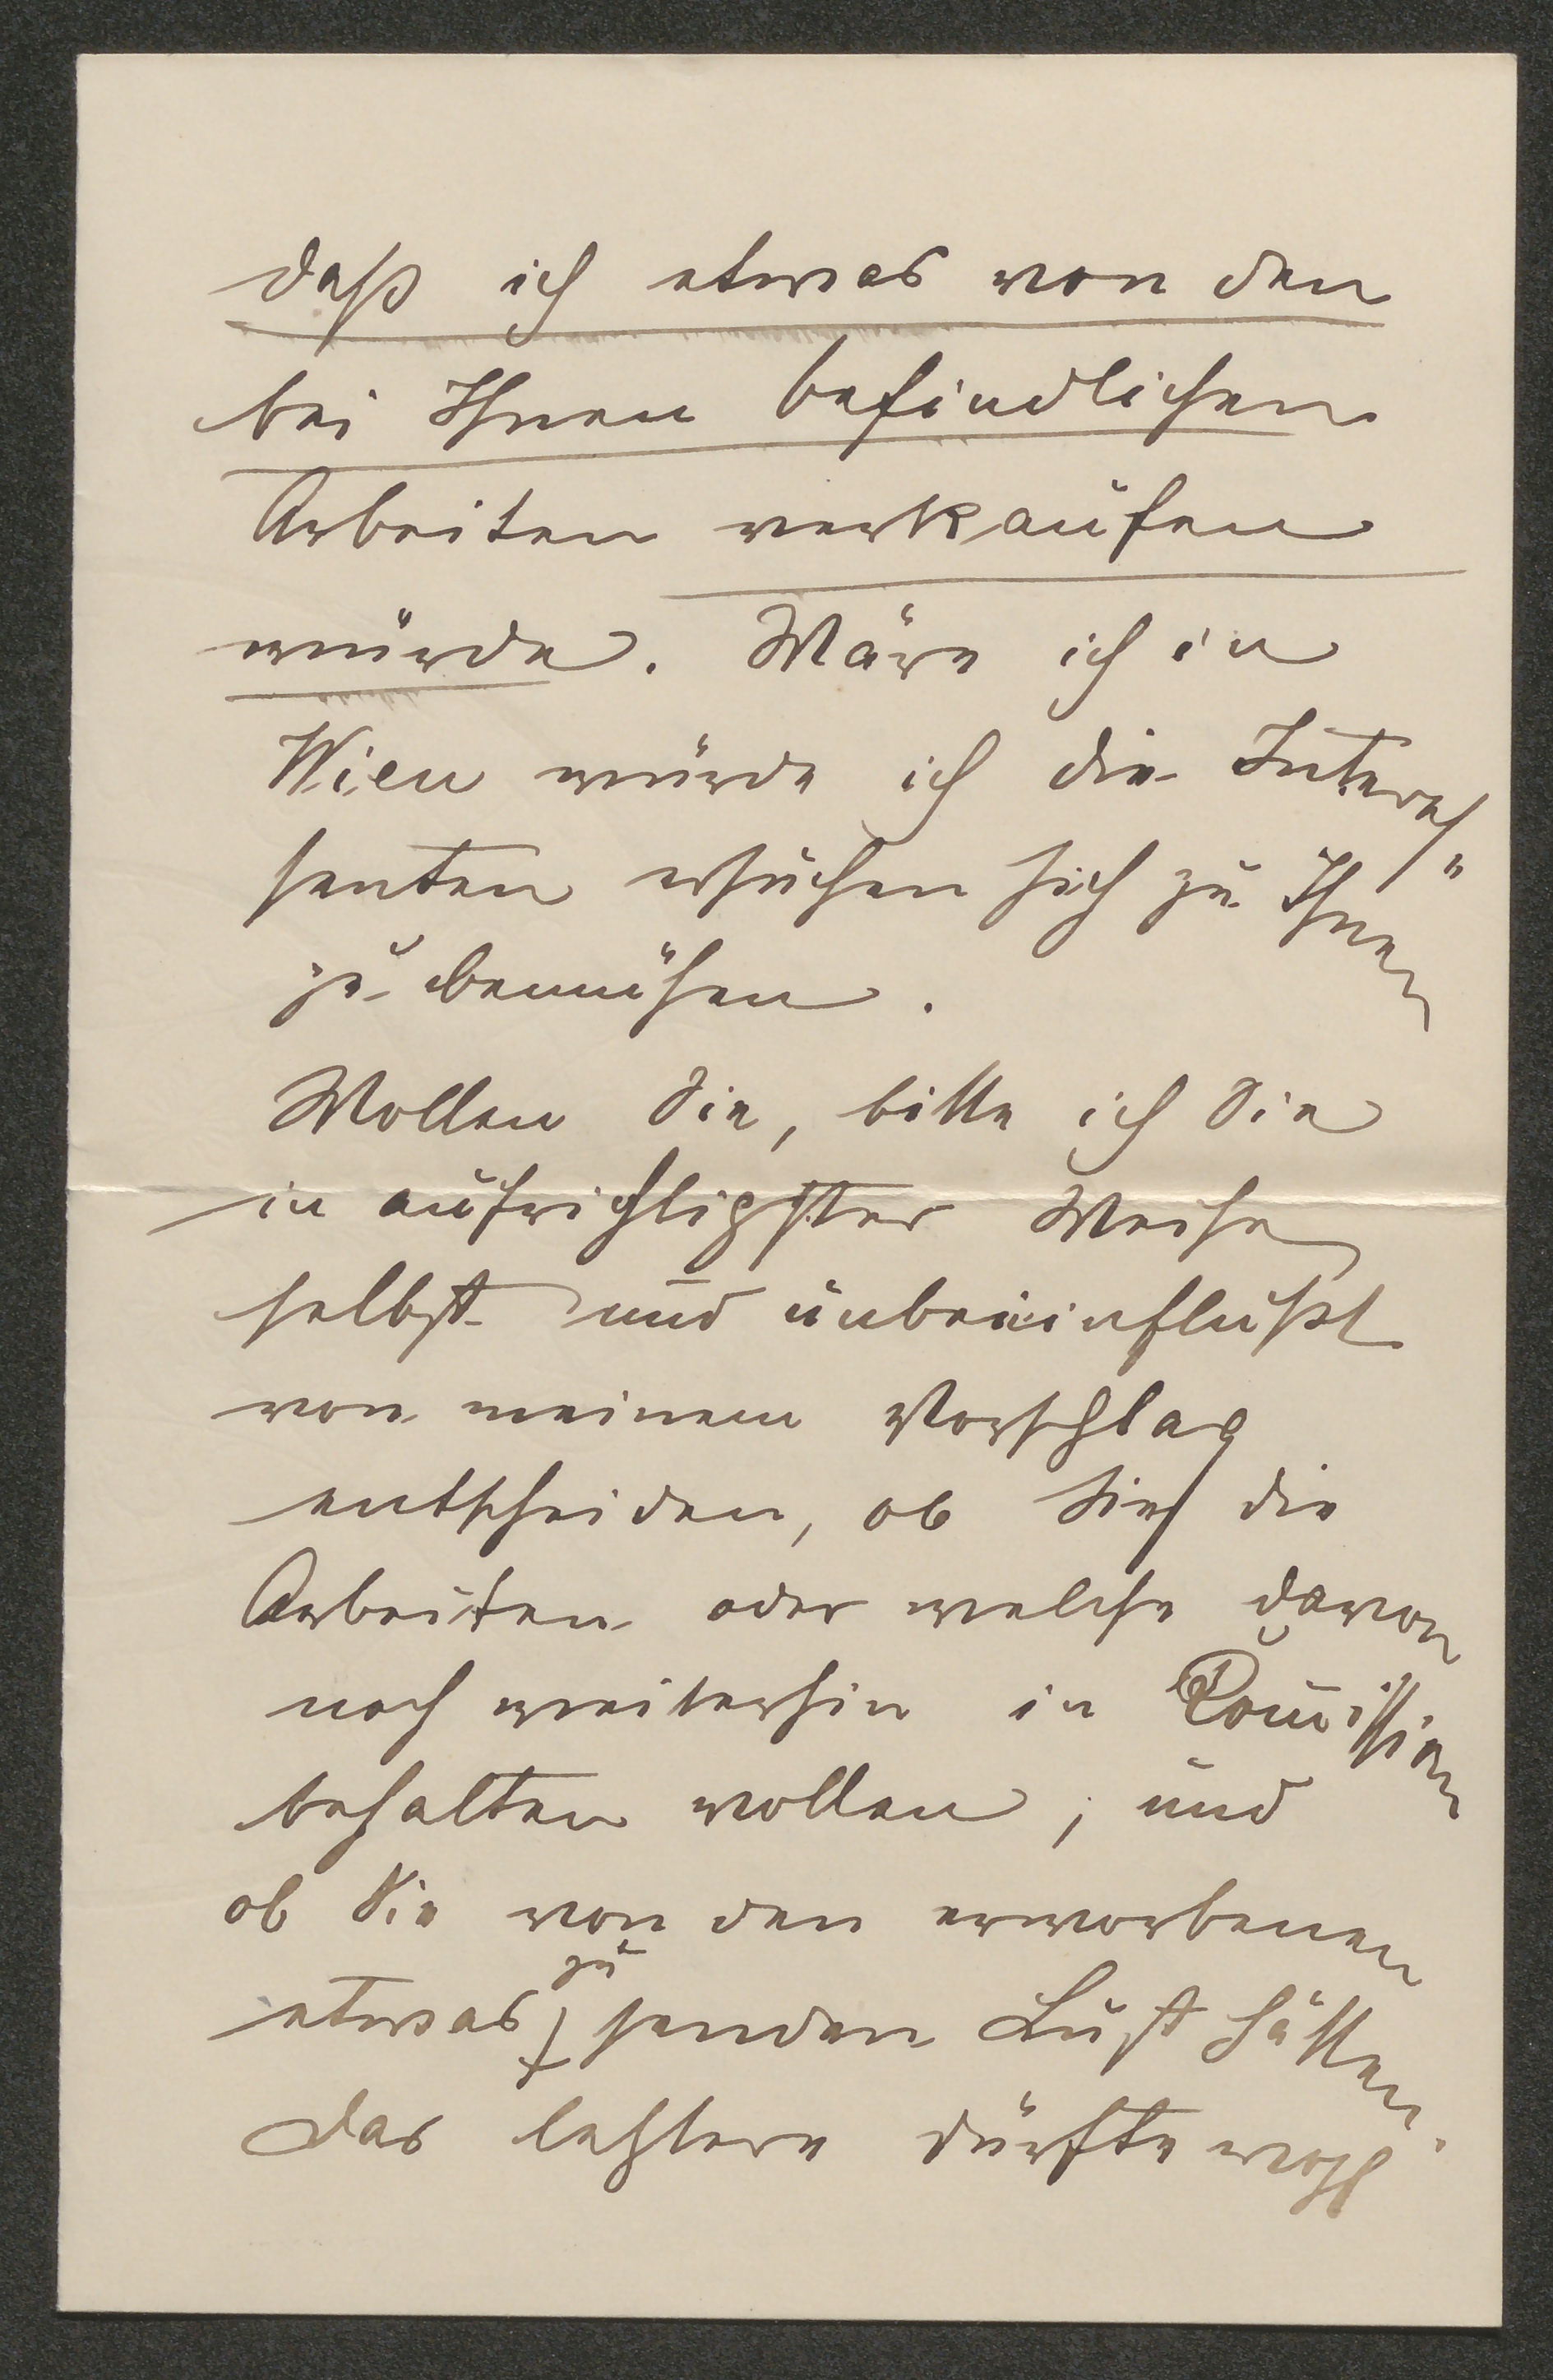 daß ich etwas von den
bei Ihnen befindlichen
Arbeiten verkaufen
würde. Wäre ich in
Wien würde ich die Interes„
senten ersuchen sich zu Ihnen
zu bemühen.
Wollen Sie, bitte ich Sie
in aufrichtigster Weise
selbst und unbeeinflußt
von meinem Vorschlag
entscheiden, ob Sie die
Arbeiten oder welche davon
noch weiterhin in Com̅ission
behalten wollen, und
ob Sie von den erworbenen
etwas zu senden Lust hätten.
Das letztere dürfte wohl